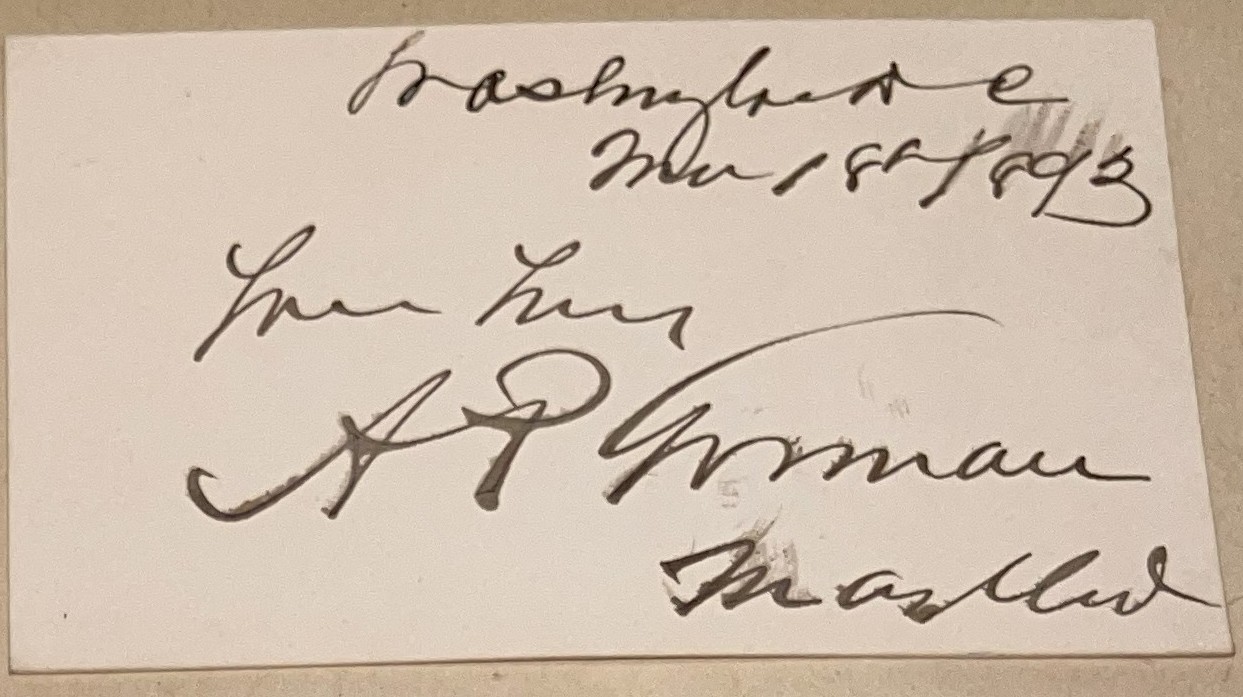 Washington D C
Mar 18th 1893
Yours Truly
A P Gorman
Maryland